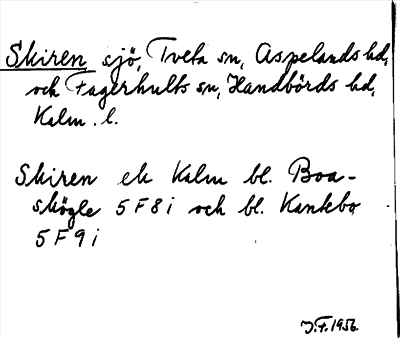 Skiren, sjö, Tveta sn, Aspelands hd,
och Fagerhults sn, Handbörds hd,
Kalm. l.
Skiren ek Kalm bl. Boa-
skögle 5 F 8 i och bl. Kankebo
5 F 9 i
J.F. 1956.